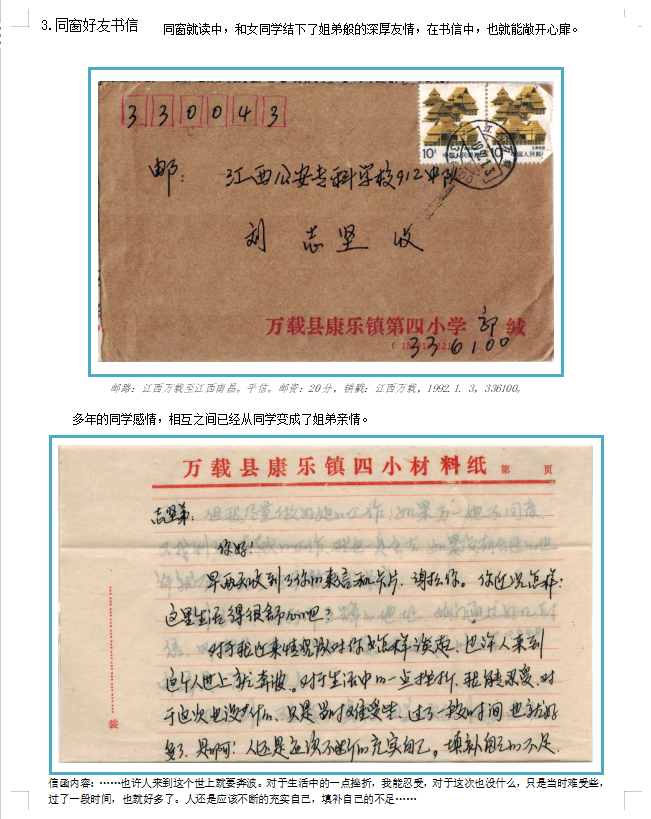 3.同窗好友书信
同窗就读中，和女同学结下了姐弟般的深厚友情，在书信中，也就能敞开心扉。
330043
10分
中国人民邮政
10分
中国人民邮政
江西万载
1992.1.3
邮：江西公安专科学校912中队
刘志坚 收
万载县康乐镇第四小学 郭 缄
336100
邮路：江西万载至江西南昌。平信。邮资：20分，销戳：江西万载，1992.1.3，336100。
多年的同学感情，相互之间已经从同学变成了姐弟亲情。
万载县康乐镇四小材料纸 第 页
志坚弟：
你好！
早两天收到了你的来言和卡片，谢谢你。你近况怎样？
这里生活得很舒心吧？
对于我近来情况该对你怎样谈起，也许人来到
这个人世上就要奔波。对于生活中的一点挫折，我能忍受，对
于这次也没什么，只是当时难受些，过了一段时间，也就好
多了，是啊！人还是应该不断的充实自己，填补自己的不足.
装
信函内容：……也许人来到这个世上就要奔波。对于生活的一点挫折，我能忍受，对于这次也没什么，只是当时难受些，
过了一段时间，也就好多了。人还是应该不断的充实自己，填补自己的不足……